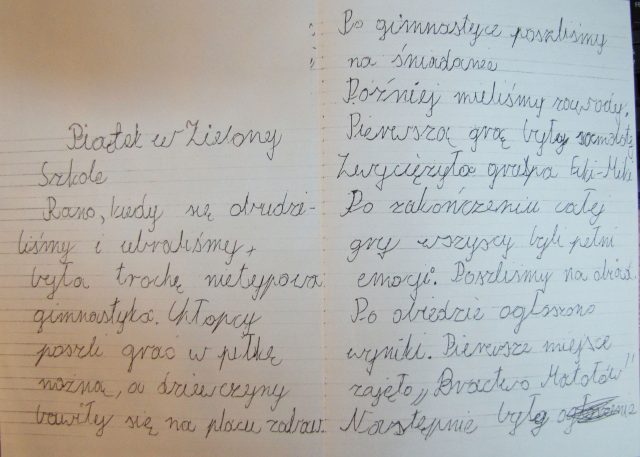 Piątek w Zielony
Szkole
Rano, kiedy się obudzi-
liśmy i ubraliśmy,
była trochę nietypowa
gimnastyka. Chłopcy
poszli grać w piłkę
nożną, a dziewczyny
bawiły się na placu zabaw.
Po gimnastyce poszliśmy
na śniadanee
Później mieliśmy zawody.
Pierwszą grą były
Zwyciężyła grupa Eki-Meki
Po zakończeniu całej
gry wszyscy byli pełni
emocji. Poszliśmy na obiad.
Po obiedzie ogłoszono
wyniki. Pierwsze miejsce
zajęło „Bractwo Matołów"
Następnie były